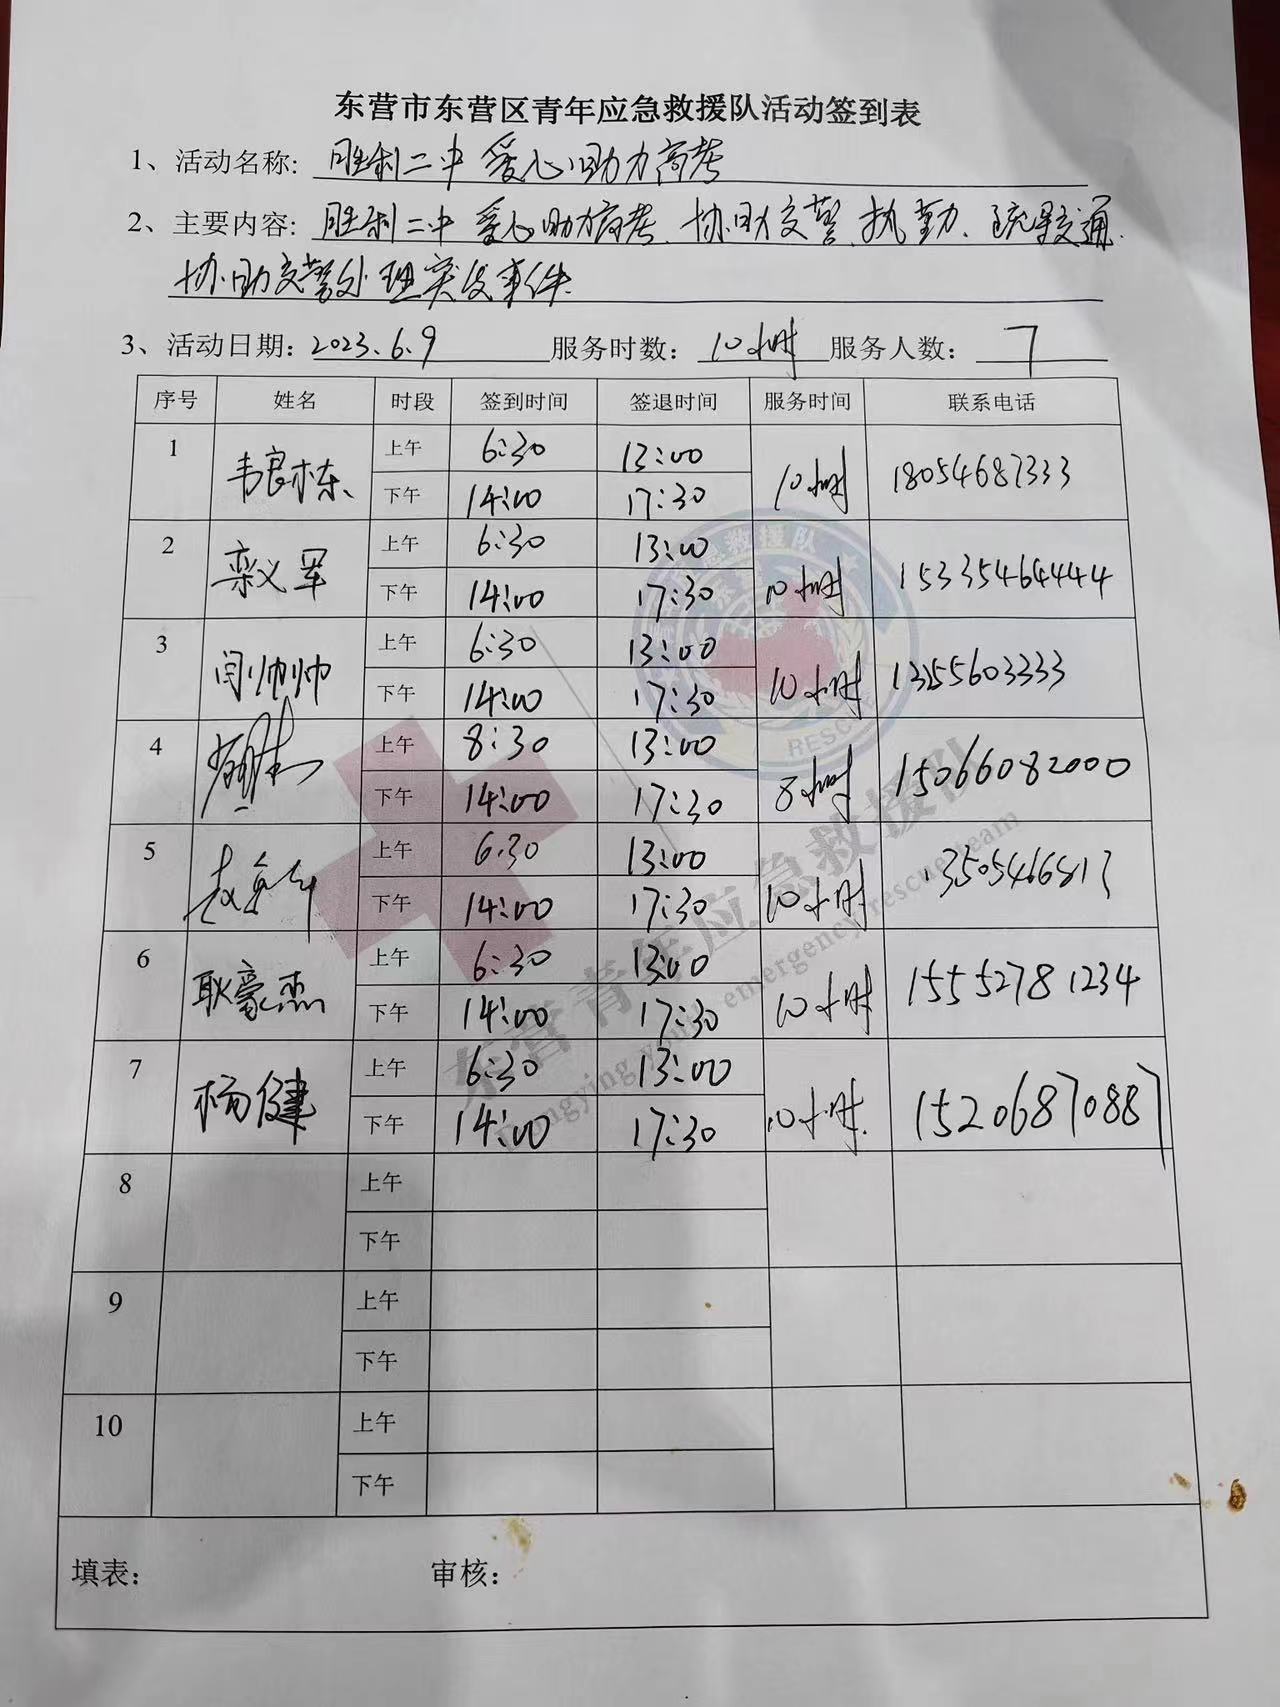 东营市东营区青年应急救援队活动签到表
1、活动名称: 胜利二中 爱心助力高考
2、主要内容: 胜利二中 爱心助力高考、协助交警执勤、疏导交通、
协助交警处理突发事件
3、活动日期: 2023.6.9 服务时数: 10小时 服务人数: 7
序号 姓名 时段 签到时间 签退时间 服务时间 联系电话
1 韦良栋 上午 6:30 13:00 10小时 18054687333
下午 14:00 17:30
2 栾义军 上午 6:30 13:00 10小时 15335464444
下午 14:00 17:30
3 闫帅帅 上午 6:30 13:00 10小时 13255603333
下午 14:00 17:30
4 上午 8:30 13:00 8小时 15066082000
下午 14:00 17:30
5 上午 6:30 13:00 10小时 13505466813
下午 14:00 17:30
6 耿豪杰 上午 6:30 13:00 10小时 15552781234
下午 14:00 17:30
7 杨健 上午 6:30 13:00 10小时 15206870887
下午 14:00 17:30
8 上午
下午
9 上午
下午
10 上午
下午
填表: 审核:
东营青年应急救援队
Dongying youth emergency rescue team
RESCUE